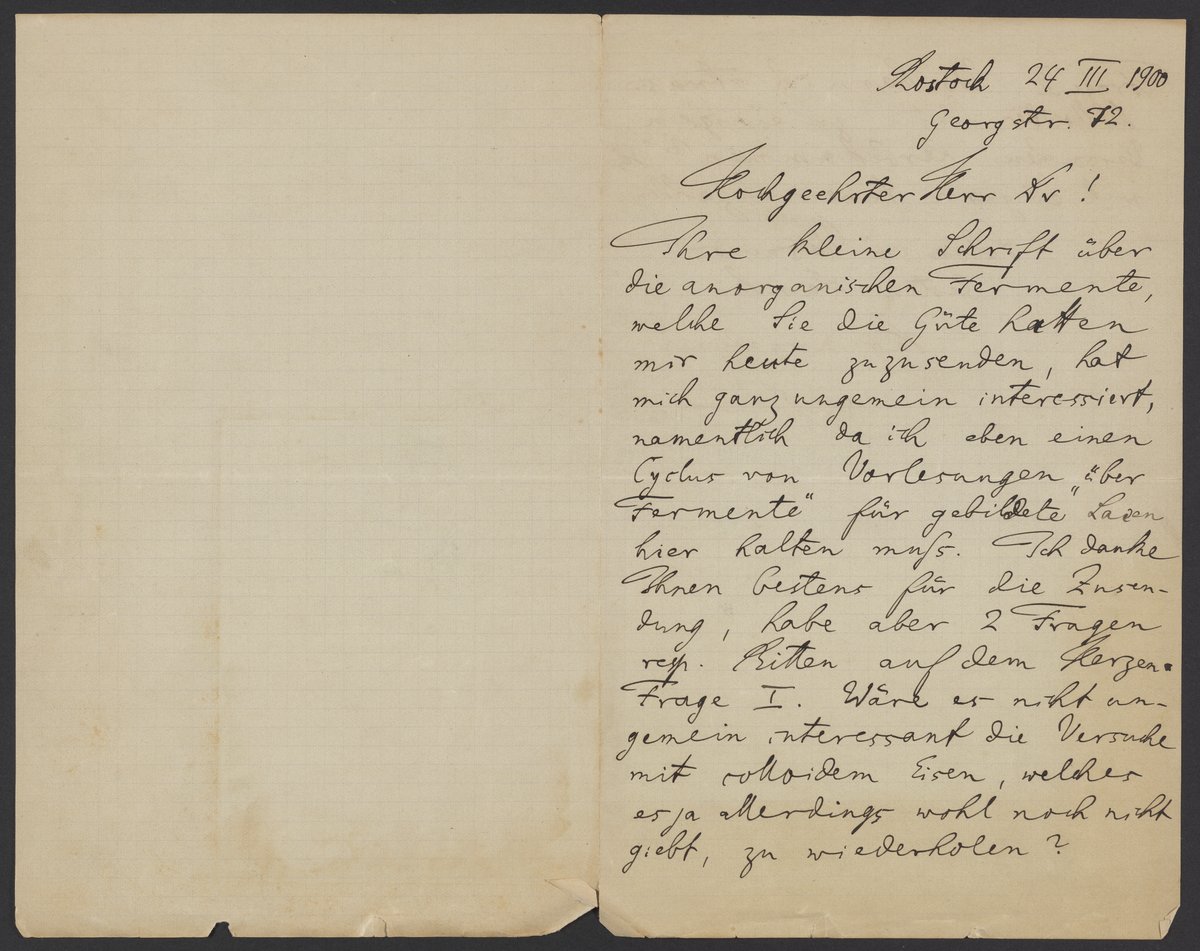 Rostock 24 III 1900
Georgstr. 72.
Hochgeehrter Herr Dr !
Ihre kleine Schrift über
die anorganischen Fermente,
welche Sie die Güte hatten
mir heute zuzusenden, hat
mich ganz ungemein interessiert,
namentlich da ich eben einen
Cyclus von Vorlesungen „über
Fermente“ für gebildete Laien
hier halten muſs. Ich danke
Ihnen bestens für die Zusen-
dung, habe aber 2 Fragen
resp. Bitten auf dem Herzen.
Frage I. Wäre es nicht un-
gemein interessant die Versuche
mit colloidem Eisen, welches
es ja allerdings wohl noch nicht
giebt, zu wiederholen?